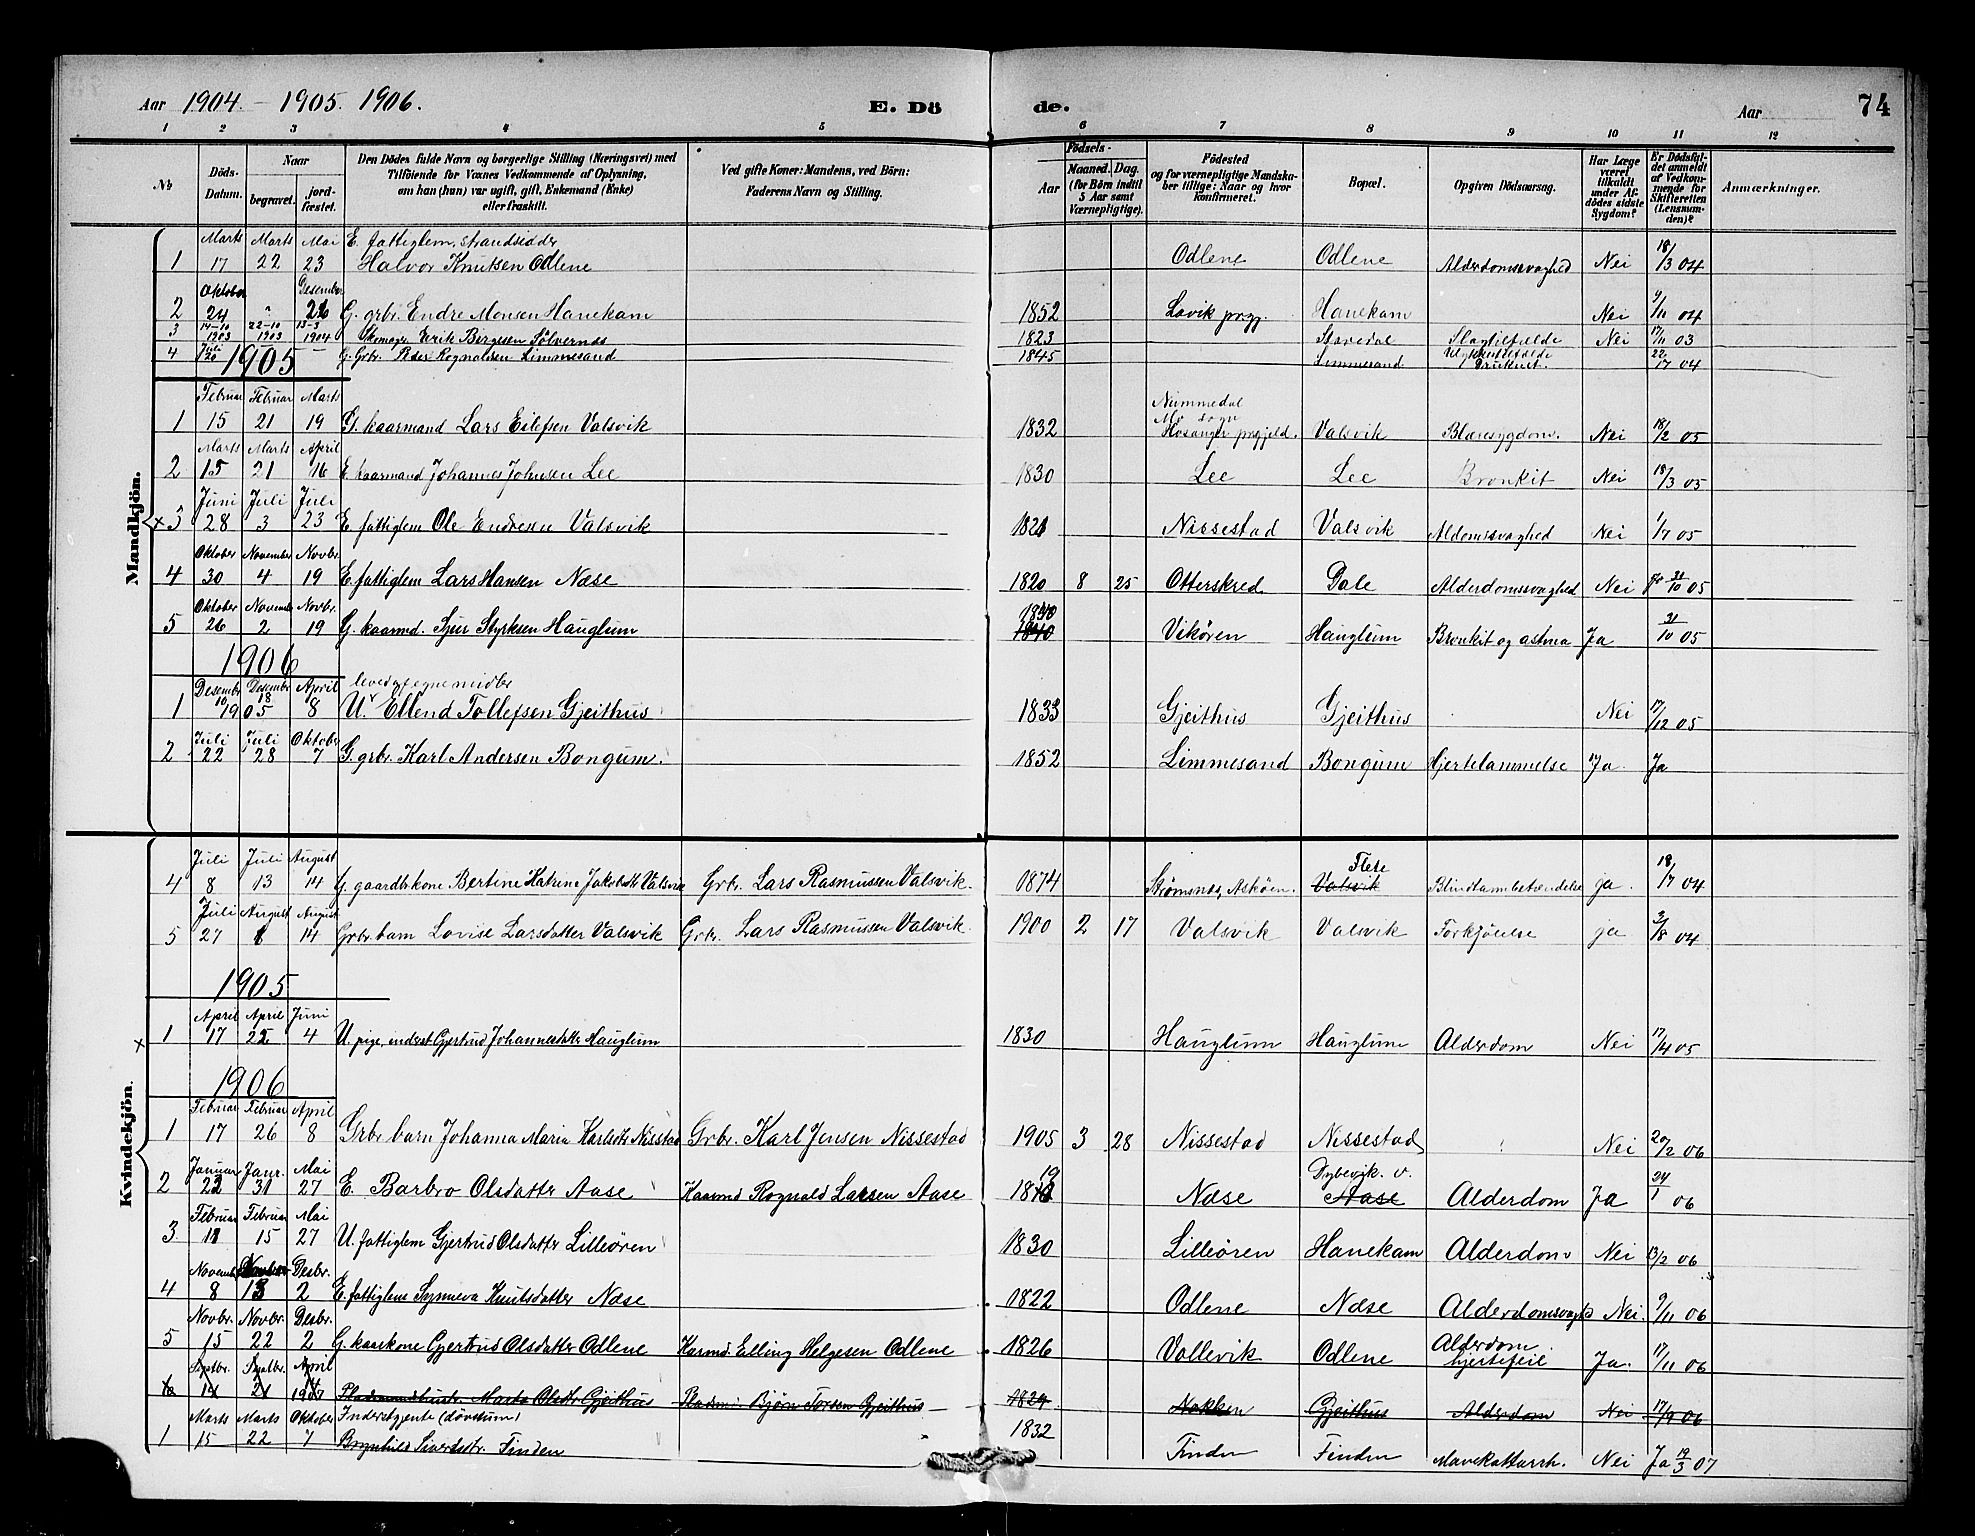 Aar 1904. - 1905. 1906. E. Dö de. Aar 74
1 2 3 4 5 6 7 8 9 10 11 12
№ Döds-Datum. Naar begravet. jord-fæstet. Den Dödes fulde Navn og borgerlige Stilling (Næringsvei) med Tilföiende for Voxnes Vedkommende af Oplysning, om han (hun) var ugift, gift, Enkemand (Enke) eller fraskilt. Ved gifte Koner: Mandens, ved Börn: Faderens Navn og Stilling. Födsels- Aar Maaned. Dag. (for Börn indtil 5 Aar samt Værnepligtige). Födested og for værnepligtige Mandskaber tillige: Naar og hvor konfirmeret. Bopæl. Opgiven Dödsaarsag. Har Læge været tilkaldt under Afdödes sidste Sygdom? Er Dödsfaldet anmeldt af Vedkommende for Skifteretten (Lensmanden)? Anmærkninger.
Mandkjön.
Marts Marts Mai E. fattiglem, strandsidder
1 17 22 23 Halvor Knutsen Odlene Odlene Odlene Alderdomssvaghed Nei 18/3 04
Oktober Desember
2 24 " 26 G. grbr. Endre Monsen Hanekam 1852 Lavik prgj. Hanekam Nei 9/11 04
3 14-10 1903 22-10 1903 13-3 1904 Skomager Eerik Børgesen Sølvernæs 1823 Stavedal Slagtilfælde Nei 17/11 03
4 Juli 20 G. Grbr. Peder Rognaldsen Limmesand 1845 Limmesand Ulykkestilfælde Druknet. 22/7 04
1905
Februar Februar Marts Nummedal Mo sogn
1 15 21 19 G. kaarmand Lars Eilefsen Valsvik 1832 Hosanger prgjeld. Valsvik Blæresygdom. Nei 18/2 05
Marts Marts April
2 15 21 16 E. kaarmand Johannes Johnsen Lee 1830 Lee Lee Bronkit Nei 18/3 05
Juni Juli Juli
x 3 28 3 23 E. fattiglem Ole Endresen Valsvik 1821 Nissestad Valsvik Aldomssvaghed Nei 1/7 05
Oktober November Novbr.
4 30 4 19 E. fattiglem Lars Hansen Næse 1820 8 25 Otterskred Dale Alderdomssvaghed Nei 31/10 05
Oktober November Novbr.
5 26 2 19 G. kaarmd. Sjur Styrksen Hauglum 1840 Vikøren Hauglum Bronkit og astma Ja 31/10 05
1906
Desembr Desembr April leved af egne midler
1 10/1905 18 8 U. Ellend Tollefsen Gjeithus 1833 Gjeithus Gjeithus Nei 17/12 05
Juli Juli Oktober
2 22 28 7 G. grbr. Karl Andersen Bongum. 1852 Limmesand Bongum Hjertelammelse Ja. Ja
Kvindekjön.
Juli Juli August Flete
4 8 13 14 G. gaardbr.kone Bertine Katrine Jakobdtr Valsvik Grbr. Lars Rasmussen Valsvik. 1874 Strømsnæs, Askøen. Valsvik Blindtarmbetændelse ja. 18/7 04
Juli August August
5 27 1 14 Grbr. barn Lovise Larsdatter Valsvik Grbr. Lars Rasmussen Valsvik. 1900 2 17 Valsvik Valsvik Forkjølelse ja 3/8 04
1905
April April Juni
x 1 17 22 4 U. pige, inderst Gjertrud Johannesdatter Hauglum 1830 Hauglum Hauglum Alderdom Nei 17/4 05
1906
Februar Februar April
1 17 26 8 Grbr. barn Johanna Maria Karlsdtr Nissestad Grbr. Karl Jensen Nissestad 1905 3 28 Nissestad Nissestad Nei 20/2 06
Januar Janr. Mai Dybevik. v.
2 22 31 27 E. Barbro Olsdatter Aase Kaarmd Rognald Larsen Aase 1819 Næse Aase Alderdom Ja 24/1 06
Februar Februar Mai
3 11 15 27 U. fattiglem Gjertrud Olsdatter Lilleøren 1830 Lilleøren Hanekam Alderdom Nei 13/2 06
Novembr Desbr.
4 8 13 2 E. fattiglem Synneva Knutsdatter Næse 1822 Odlene Næse Alderdomssvaghd Nei. 9/11 06
Novbr. Novbr. Desbr.
5 15 22 2 G. kaarkone Gjertrud Olsdatter Odlene Karmd. Elling Helgesen Odlene 1826 Vallevik Odlene Alderdom hjertefeil Ja. 17/11 06
Septbr. Septbr. April
6 14 21 1907 Pladsmandshustr. Marta Olsdtr Gjeithus Pladsm. Bjørn Torsen Gjeithus 1829 Nokken Gjeithus Alderdom Nei 17/9 06
Marts Marts Oktober Inderstjente (døvstum)
1 15 22 7 Brynhild Sivertsdtr. Finden 1832 Finden Finden Mavekattarrh. Nei Ja 19/3 07